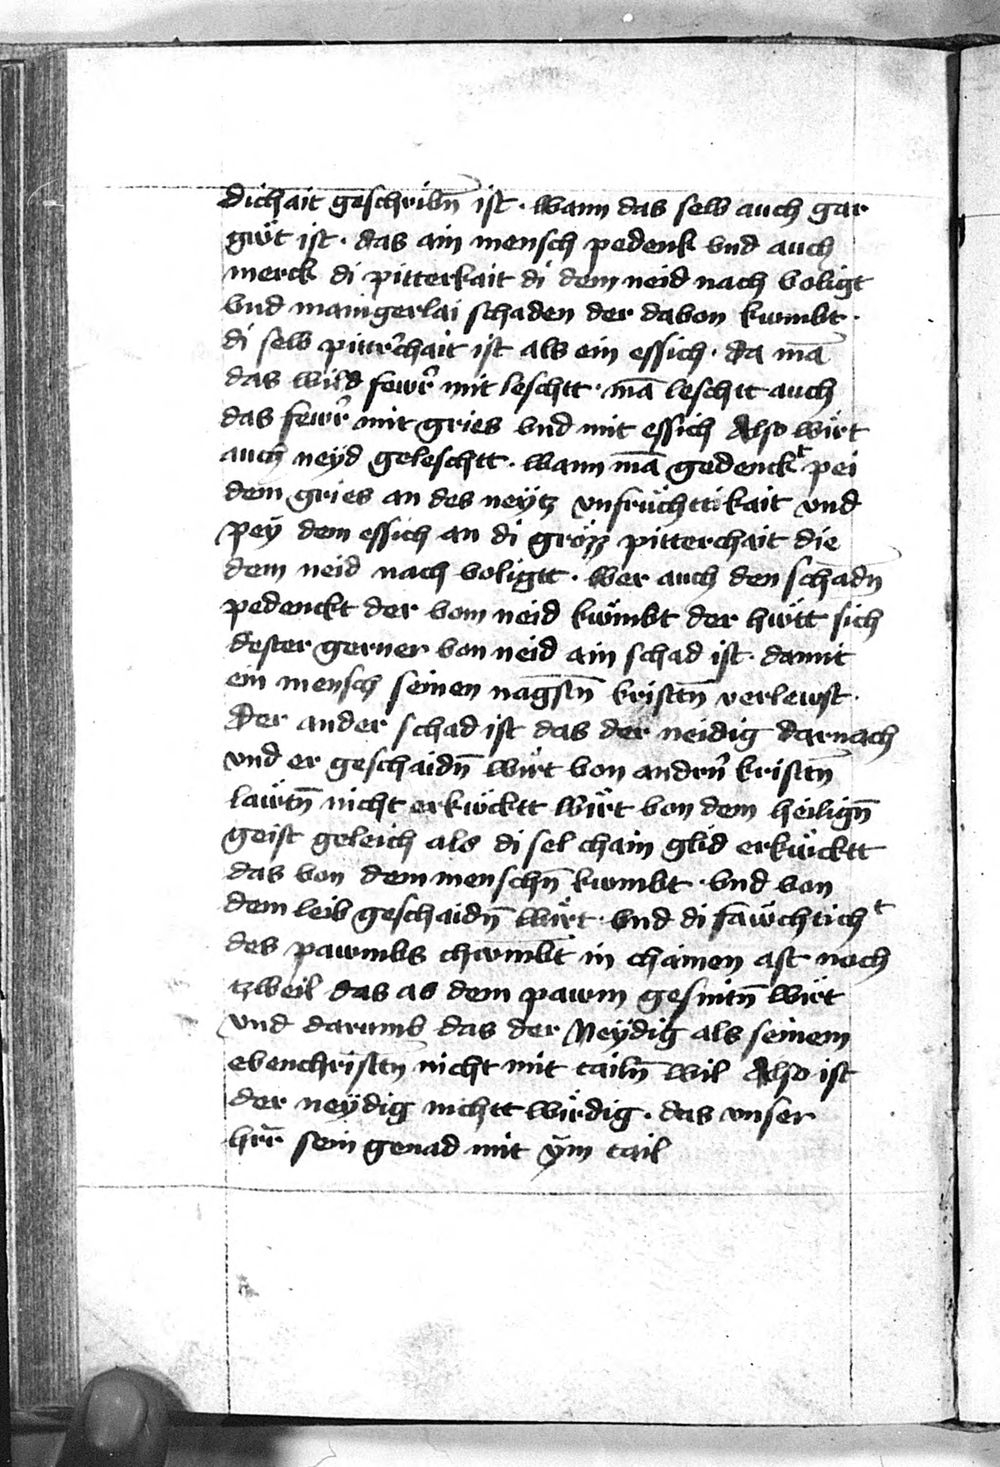 dichait geschribn̄ ist · wann das selb auch gar
gu̎t ist · das ain mensch pedenk vnd auch
merck di pitterkait di dem neid nach voligt
vnd maingerlai schaden der davon kumbt ·
di selb pittr̄chait ist als ein essich · da mā
das wild fewr̄ mit leschtt · mā leschtt auch
das fewr̄ mit gries vnd mit essich Also wirt
auch neyd geleschtt · wann mā gedenckt pei
dem gries an des neÿtz vnfrüchttikait vnd
peÿ dem essich an di grözz pitterchait die
dem neid nach voligtt · wer auch den schadn̄
pedenckt der vom neid kümbt der hütt sich
dester gerner von neid ain schad ist · damit
ein mensch seinen nagstn̄ kristtn̄ verlewst ·
Der ander schad ist das der neidig darnach
vnd er geschaidn̄ wirt von andrn̄ kristtn̄
läwtn̄ nicht erkücktt wirt von dem heilign̄
geist geleich als di sel chain glid erkücktt
das von dem menschn̄ kumbt · vnd von
dem leib geschaidn̄ wirt · vnd di fäwchticht
des pawmbs chumbt in chainen ast noch
tzweil das as dem pawm gesnitn̄ wirt
vnd darumb das der Neÿdig als seinem
ebenchristtn̄ nicht mit tailn̄ wil Also ist
der neÿdig nichtt wirdig · das vnser
hr̄r sein genad mit ȳm tail